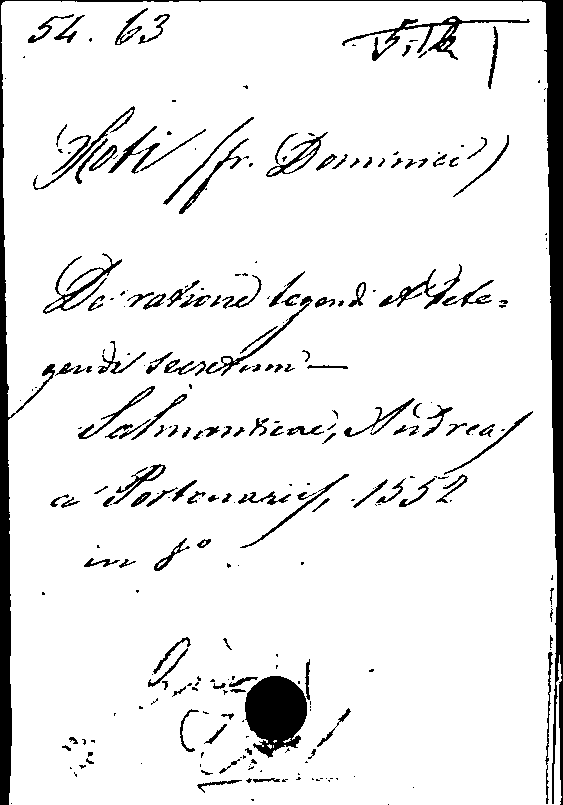 54. 63
Soti (fr. Dominici)
De ratione tegendi et dete=
gendi secretum —
Salmanticae, Andreas
a Portonariis, 1552
in 8º.